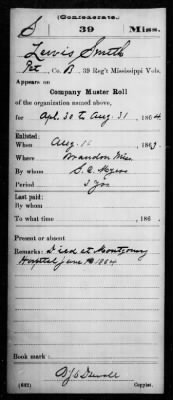 (Confederate.)
S 39 Miss.
Lewis Smith
Pvt, Co. B, 39 Reg't Mississippi Vols.
Appears on
Company Muster Roll
of the organization named above,
for Apl. 30 to Aug. 31, 1864
Enlisted:
When Aug. 186
Where Brandon Miss.
By whom S. E.
Period 3 Yrs
Last paid:
By whom
To what time , 186 .
Present or absent
Remarks: Died at Montgomery
Hospital June 1864
Book mark:
(642) Copyist.